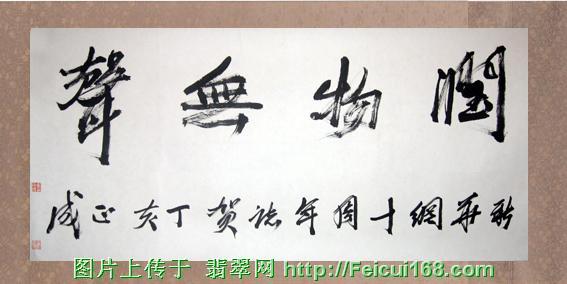 潤物無聲
新華網十周年誌賀丁亥正成
图片上传于 翡翠网 http://Feicui168.com